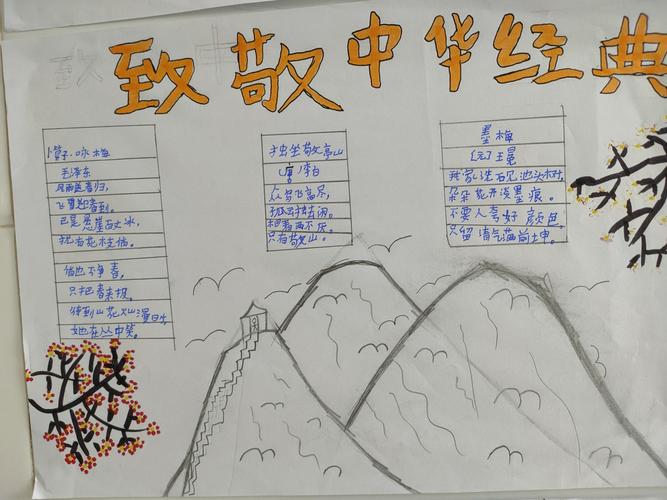 致敬中华经典
卜算子·咏梅
毛泽东
风雨送春归,
飞雪迎春到。
已是悬崖百丈冰,
犹有花枝俏。
俏也不争春,
只把春来报。
待到山花烂漫时,
她在丛中笑。
独坐敬亭山
(唐)李白
众鸟飞高尽,
孤云独去闲。
相看两不厌,
只有敬亭山。
墨梅
(元)王冕
我家洗砚池头树,
朵朵花开淡墨痕。
不要人夸好颜色,
只留清气满乾坤。